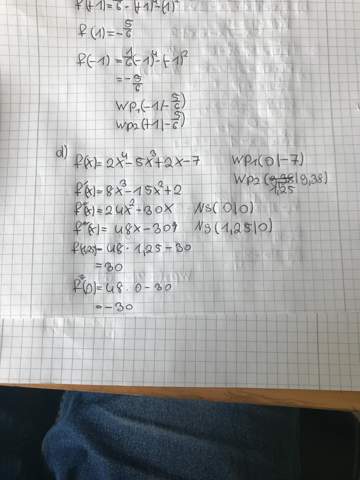 f(+1) = 1/6 · (+1)⁴ - (+1)²
f(1) = -5/6
f(-1) = 1/6 (-1)⁴ - (-1)²
= -5/6
WP₁ (-1 | -5/6)
WP₂ (+1 | -5/6)
d)
f(x) = 2x⁴ - 5x³ + 2x - 7 WP₁ (0 | -7)
WP₂ ( | 9,38)
1,25
f'(x) = 8x³ - 15x² + 2
f''(x) = 24x² - 30x NS (0|0)
f'''(x) = 48x - 30 NS (1,25|0)
f'''(1,25) = 48 · 1,25 - 30
= 30
f'''(0) = 48 · 0 - 30
= -30